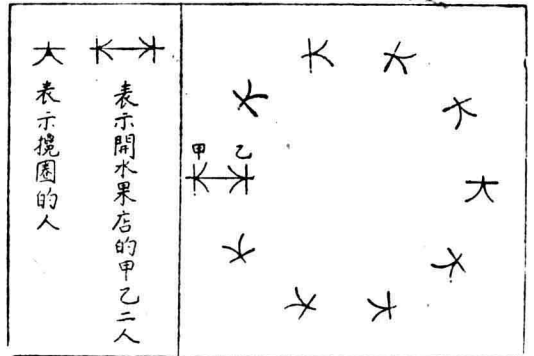 甲 乙
表示開水果店的甲乙二人
表示圈的人